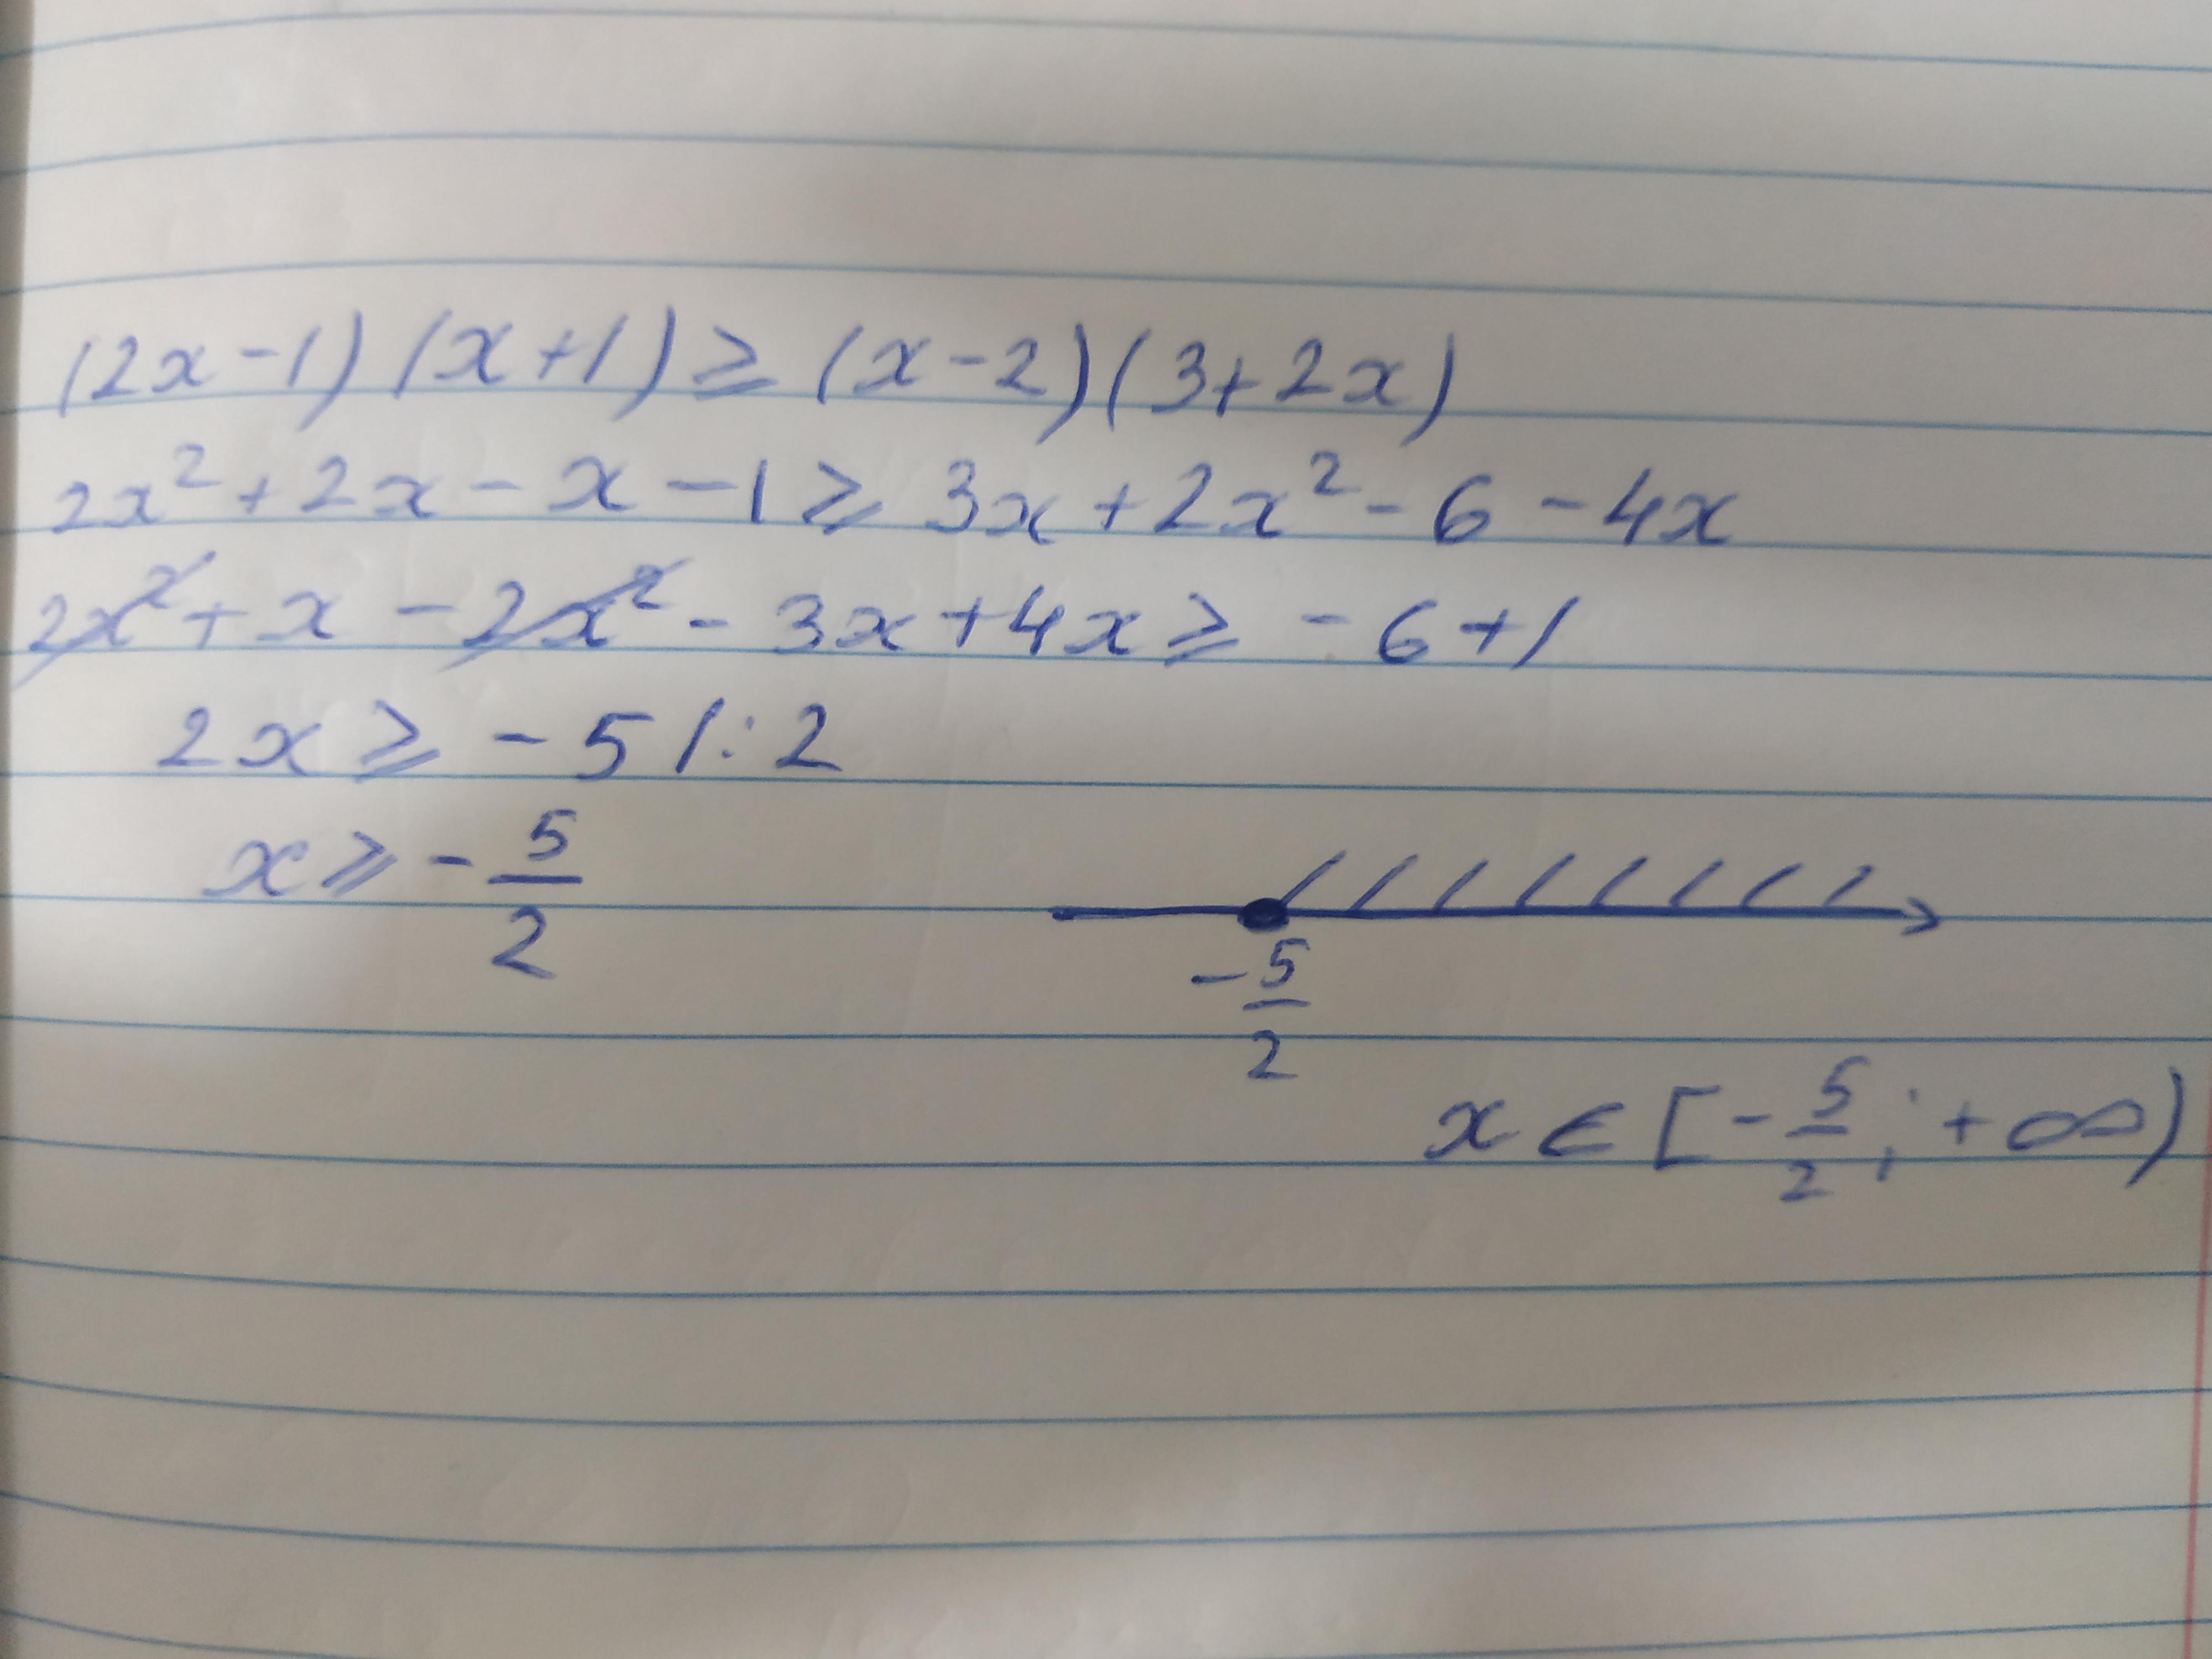 (2x-1)(x+1)⩾(x-2)(3+2x)
2x²+2x-x-1⩾3x+2x²-6-4x
2x²+x-2x²-3x+4x⩾-6+1
2x⩾-5 /:2
x⩾-5/2
-5/2
x∈[-5/2;+∞)